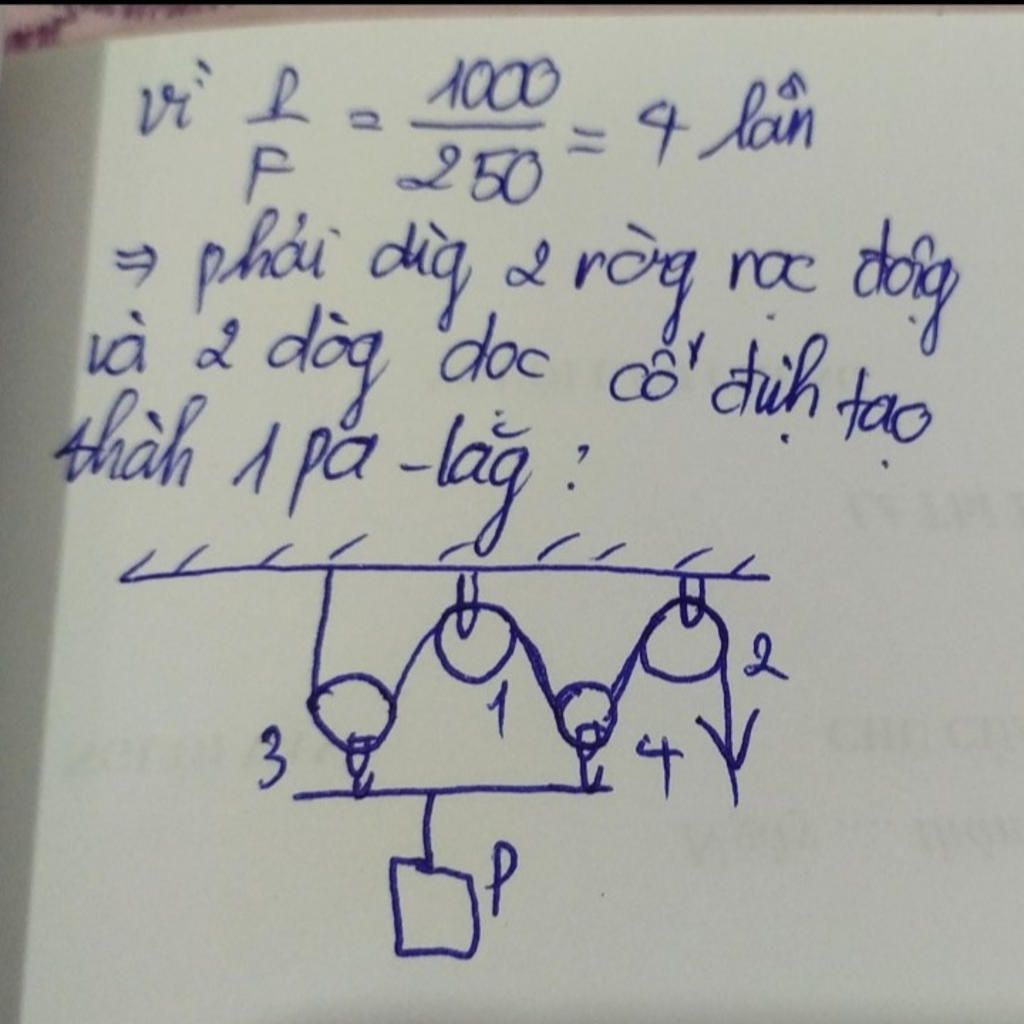 vì P/F = 1000/250 = 4 lần
⇒ phải dùg 2 ròng rọc động
và 2 dòg dọc cố định tạo
thàh 1 pa-lăg:
1
2
3
4
P